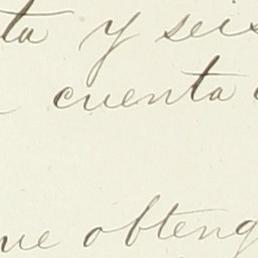 ta y seis
cuenta
ue obteng